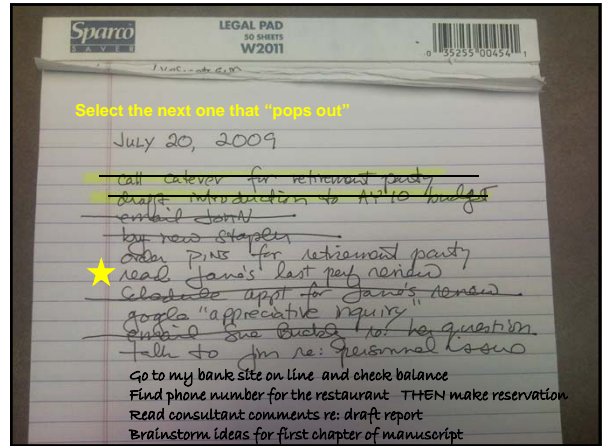 Sparco
SAVER
LEGAL PAD
50 SHEETS
W2011
0 35255 00454 1
Select the next one that “pops out”
JULY 20, 2009
call caterer for retirement party
draft introduction to AP10 budget
email JOHN
by new stapler
order PINS for retirement party
read Jane's last perf review
Schedule appt for Jane's review
google "appreciative inquiry"
email Sue Buckle re: her question
talk to Jim re: personnel issue
Go to my bank site on line and check balance
Find phone number for the restaurant THEN make reservation
Read consultant comments re: draft report
Brainstorm ideas for first chapter of manuscript